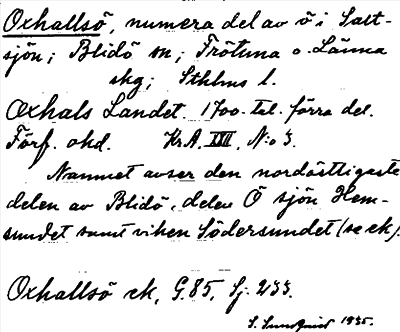 Oxhallsö, numera del av ö i Salt-
sjön; Blidö sn; Frötuna o. Länna
skg; Sthlms l.
Oxhals Landet 1700-tal. förra del.
Förf. okd. KrA. XIII, N:o 3.
Namnet avser den nordöstligaste
delen av Blidö, delen Ö sjön Hem-
sundet samt viken Södersundet (se ek).
Oxhallsö ek, G.85, Sj. 233.
S. Sundquist 1935.